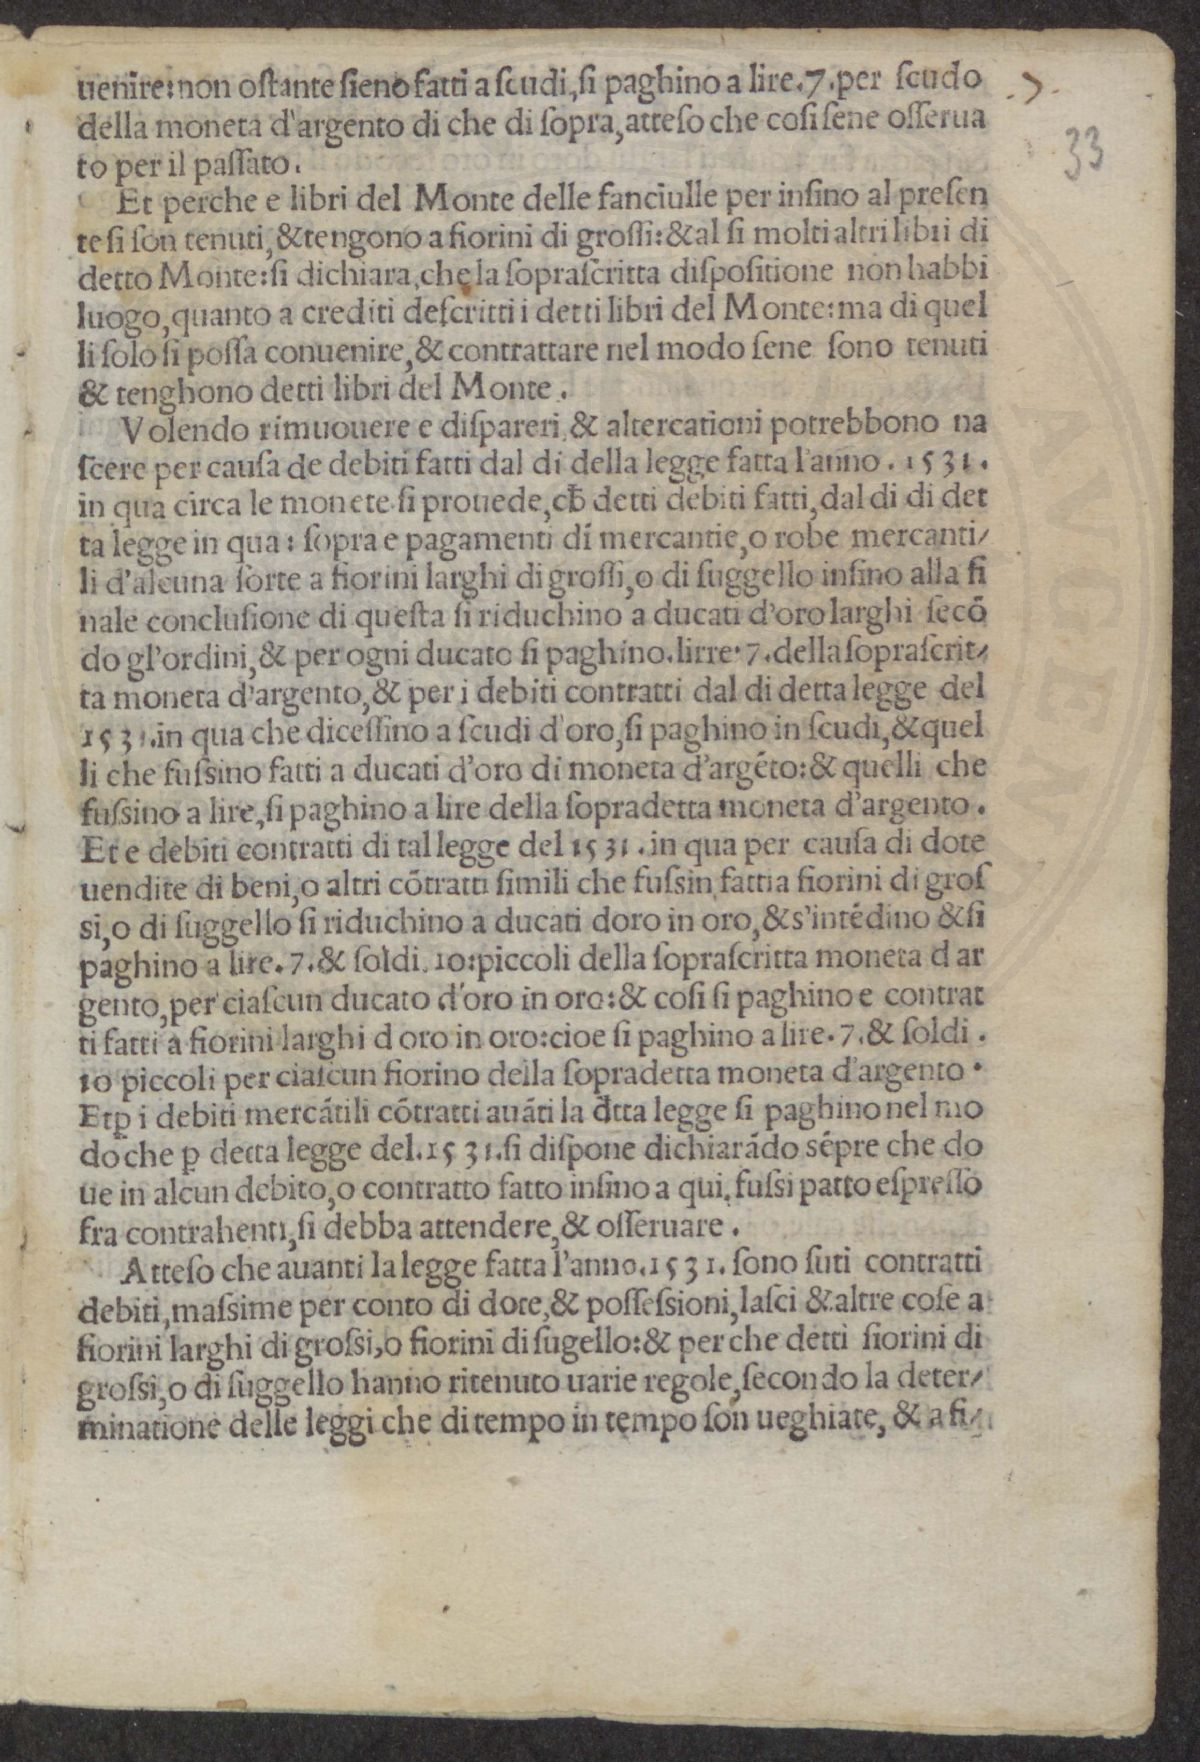 uenire: non oſtante ſieno fatti a ſcudi, ſi paghino a lire. 7. per ſcudo
.7.
della moneta d'argento di che di ſopra, atteſo che coſi ſene oſſerua
33
to per il paſſato.
Et perche e libri del Monte delle fanciulle per inſino al preſen
te ſi ſon tenuti, & tengono a fiorini di groſſi: & al ſi molti altri libri di
detto Monte: ſi dichiara, che la ſopraſcritta diſpoſitione non habbi
luogo, quanto a crediti deſcritti i detti libri del Monte: ma di quel
li ſolo ſi poſſa conuenire, & contrattare nel modo ſene ſono tenuti
& tenghono detti libri del Monte.
Volendo rimuouere e diſpareri, & altercationi potrebbono na
ſcere per cauſa de debiti fatti dal di della legge fatta l'anno. 1531.
in qua circa le monete ſi prouede, cħ detti debiti fatti, dal di di det
ta legge in qua: ſopra e pagamenti di mercantie, o robe mercanti/
li d'alcuna ſorte a fiorini larghi di groſſi, o di ſuggello inſino alla fi
nale concluſione di queſta ſi riduchino a ducati d'oro larghi ſecō
do gl'ordini, & per ogni ducato ſi paghino. lirre. 7. della ſopraſcrit/
ta moneta d'argento, & per i debiti contratti dal di detta legge del
1531. in qua che diceſſino a ſcudi d'oro, ſi paghino in ſcudi, & quel
li che fuſsino fatti a ducati d'oro di moneta d'argéto: & quelli che
fuſsino a lire, ſi paghino a lire della ſopradetta moneta d'argento.
Et e debiti contratti di tal legge del 1531. in qua per cauſa di dote
uendite di beni, o altri cōtratti ſimili che fuſsin fatti a fiorini di groſ
si, o di ſuggello ſi riduchino a ducati doro in oro, & s'intédino & ſi
paghino a lire. 7. & ſoldi. 10: piccoli della ſopraſcritta moneta d ar
gento, per ciaſcun ducato d'oro in oro: & coſi ſi paghino e contrat
ti fatti a fiorini larghi d oro in oro: cioe ſi paghino a lire. 7. & ſoldi.
10 piccoli per ciaſcun fiorino della ſopradetta moneta d'argento.
Et ꝑ i debiti mercátili cōtratti auáti la đtta legge ſi paghino nel mo
do che ꝑ detta legge del. 1531. ſi diſpone dichiarádo sépre che do
ue in alcun debito, o contratto fatto inſino a qui, fuſsi patto eſpreſſo
fra contrahenti, ſi debba attendere, & oſſeruare.
Atteſo che auanti la legge fatta l'anno. 1531. ſono ſuti contratti
debiti, maſsime per conto di dote, & poſſeſsioni, laſci & altre coſe a
fiorini larghi di groſsi, o fiorini di ſugello: & per che detti fiorini di
groſsi, o di ſuggello hanno ritenuto uarie regole, ſecondo la deter/
minatione delle leggi che di tempo in tempo ſon ueghiate, & a fi/